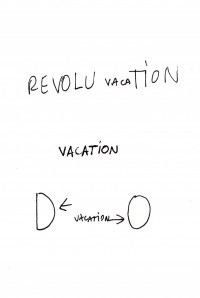 REVOLU VACATION
VACATION
D ← VACATION → O